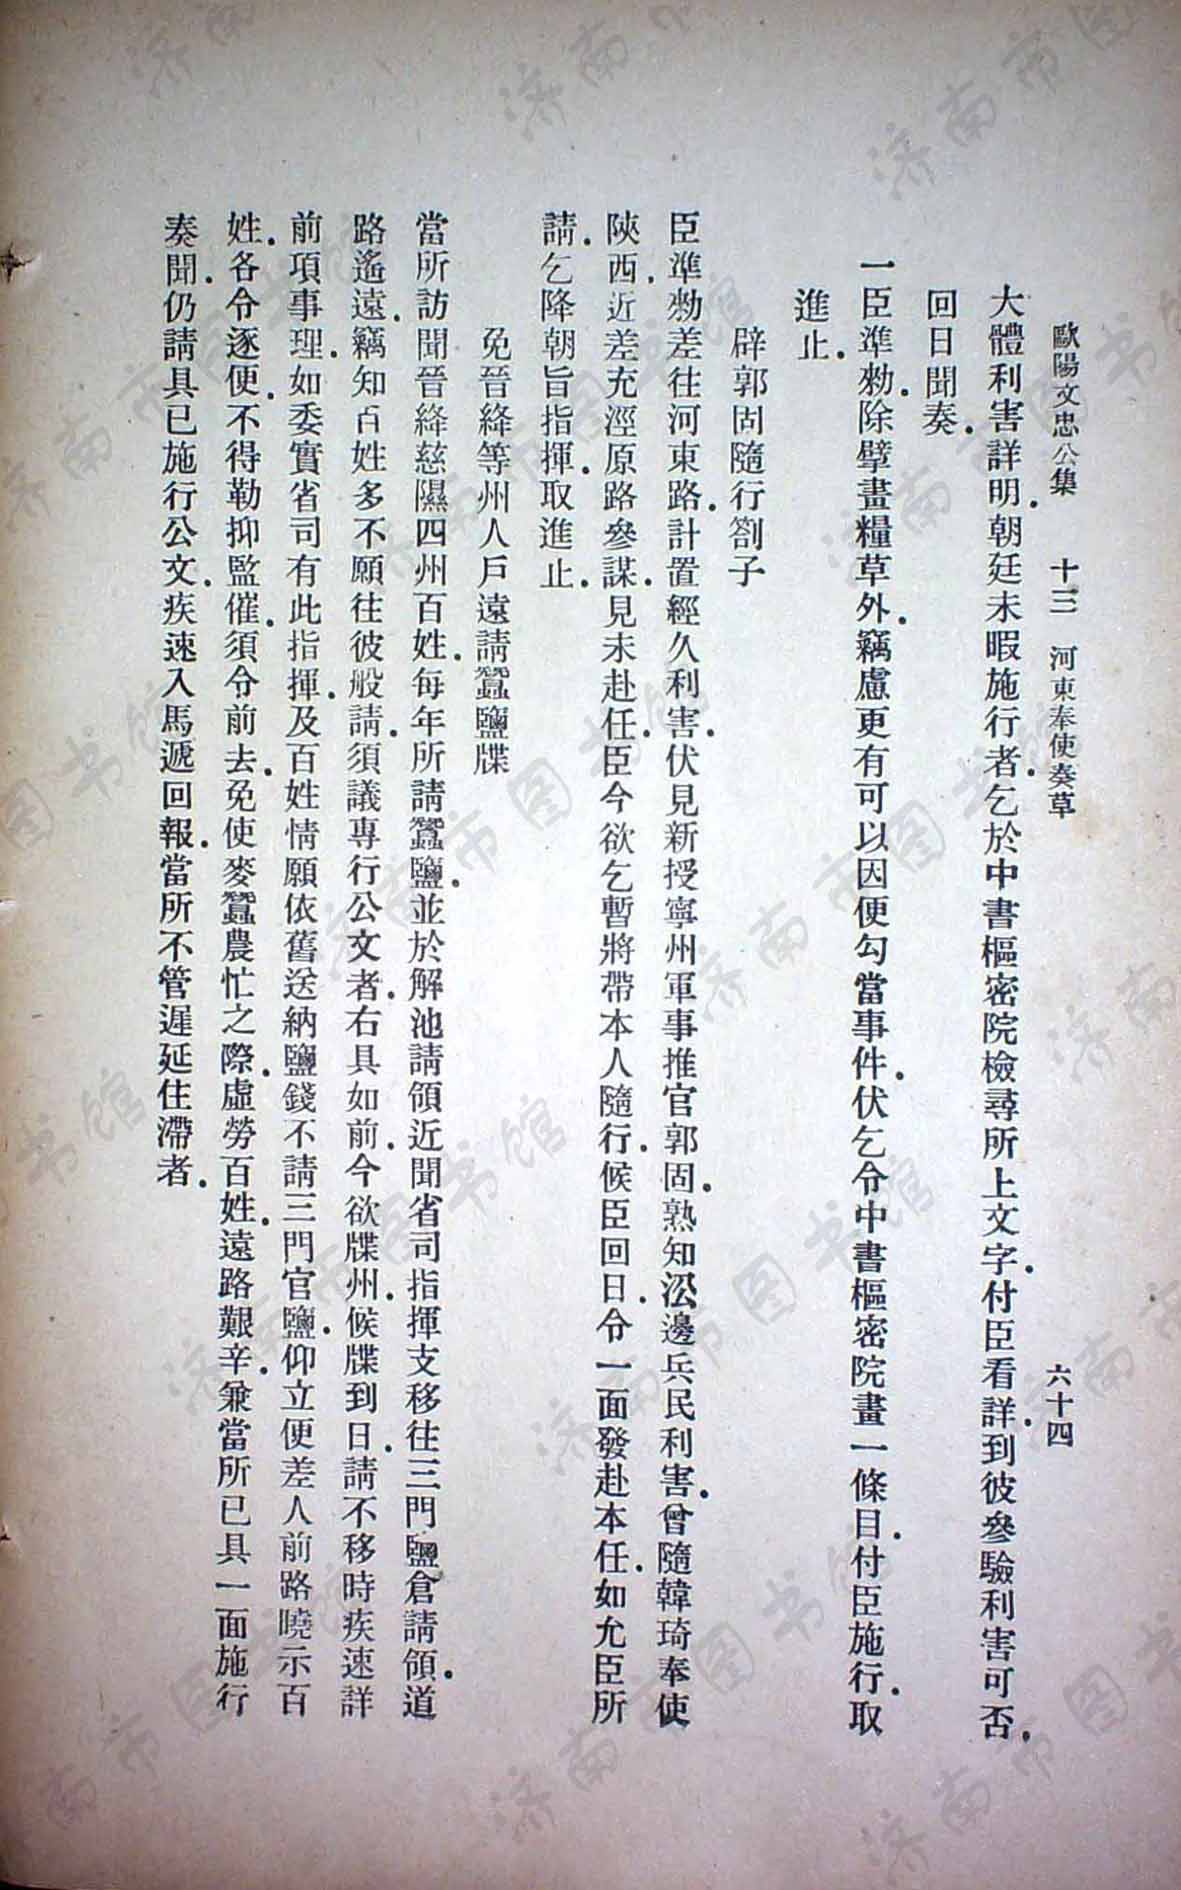 歐陽文忠公集　十三　河東奉使奏草　六十四
大體利害詳明.朝廷未暇施行者.乞於中書樞密院檢尋所上文字.付臣看詳.到彼參驗利害可否.
回日聞奏.
一臣準勑.除擘畫糧草外.竊慮更有可以因便勾當事件.伏乞令中書樞密院畫一條目.付臣施行.取
進止.
辟郭固隨行劄子
臣準勑差往河東路.計置經久利害.伏見新授寧州軍事推官郭固.熟知㳂邊兵民利害.曾隨韓琦奉使
陝西.近差充涇原路參謀.見未赴任.臣今欲乞暫將帶本人隨行.候臣回日.令一面發赴本任.如允臣所
請.乞降朝旨指揮.取進止.
免晉絳等州人戶遠請蠶鹽牒
當所訪聞晉絳慈隰四州百姓.每年所請蠶鹽.並於解池請領近聞省司指揮支移往三門鹽倉請領.道
路遙遠.竊知百姓多不願往彼般請.須議專行公文者.右具如前.今欲牒州.候牒到日.請不移時疾速詳
前項事理.如委實省司有此指揮.及百姓情願依舊送納鹽錢不請三門官鹽.仰立便差人前路曉示百
姓.各令逐便.不得勒抑監催.須令前去.免使麥蠶農忙之際.虛勞百姓.遠路艱辛.兼當所已具一面施行
奏聞.仍請具已施行公文.疾速入馬遞回報.當所不管遲延住滯者.
济南市图书馆